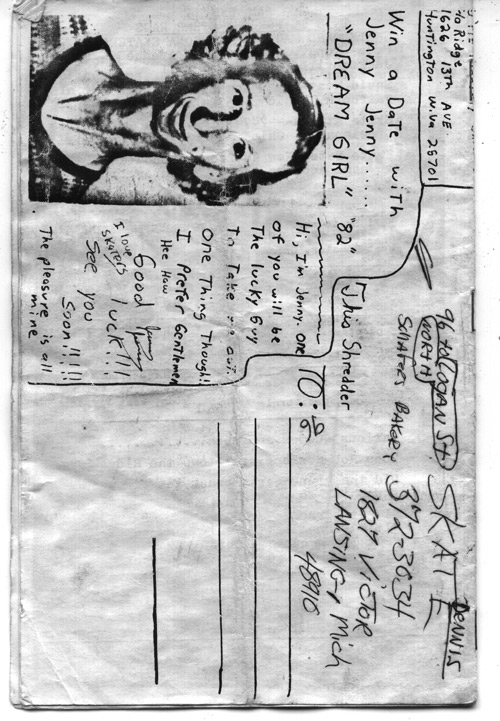 % Ridge
1626 13th AVE.
Huntington W.Va 25701
Win a Date with
Jenny Jenny......
"DREAM GIRL"
"82"
Hi, I'm Jenny. one
of you will be
The lucky Guy
To Take me out.
One Thing Though!!
I Prefer Gentlemen
Hee Haw
Good luck!!!
I love
skaters
See you
soon!!!!!
The pleasure is all
mine
This Shredder
TO:
96 to LOGAN St.
NORTH
BAKERY
SKATE
DENNIS
372-3034
1827 VICTOR
LANSING, Mich
48910